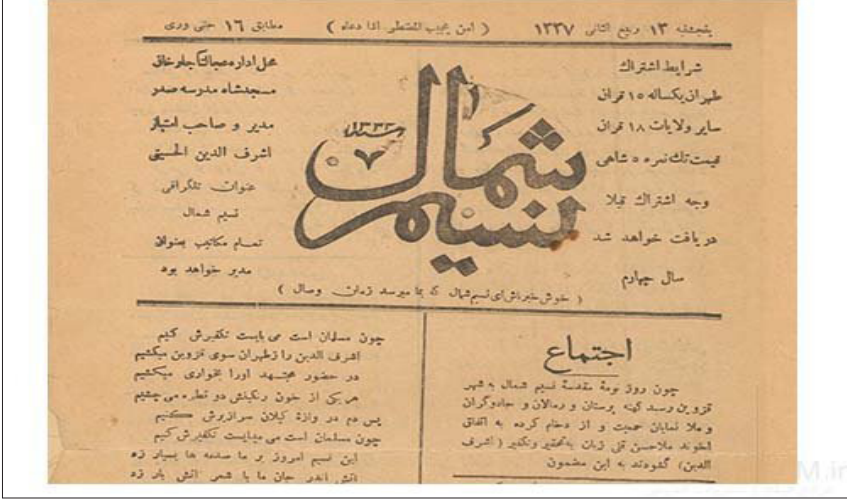 پنجشنبه ۱۳ ربیع الثانی ۱۳۳۷
( امن یجیب المضطر اذا دعاه )
مطابق ۱۶ جدی
شرایط اشتراك
طهران یکساله ۱۵ قران
سایر ولایات ۱۸ قران
قیمت تك نمره ۵ شاهی
وجه اشتراك قبلا
دریافت خواهد شد
سال چهارم
نسیم شمال
۱۳۳۳
۷
محل اداره
مسجد شاه مدرسه صدر
مدیر و صاحب امتیاز
اشرف الدین الحسینی
عنوان تلگرافی
نسیم شمال
تمام مکاتیب بعنوان
مدیر خواهد بود
( خوش خبر باش ای نسیم شمال که بما میرسد زمان وصال )
اجتماع
چون روز نسیم شمال به شهر
قزوین رسید کهنه پرستان و رمالان و جادوگران
و ملا نمایان جمعیت و از دحام کرده به اتفاق
اخوند ملاحسن قلی زبان به تحقیر وتکفیر ( اشرف
الدین) گشودند به این مضمون
چون مسلمان است می بایست تکفیرش کنیم
اشرف الدین را زطهران سوی قزوین میکشیم
در حضور مجتهد اورا بخواری میکشیم
هر یکی از خون رنگینش دو قطره می چشیم
پس دم در وازهٔ کیلان سرازیرش کنیم
چون مسلمان است می میبایست تکفیرش کنیم
این نسیم امروز بر ما صدمه ها بسیار زد
اتش اندر جان ما با شعر اتش بار زد
M.ir